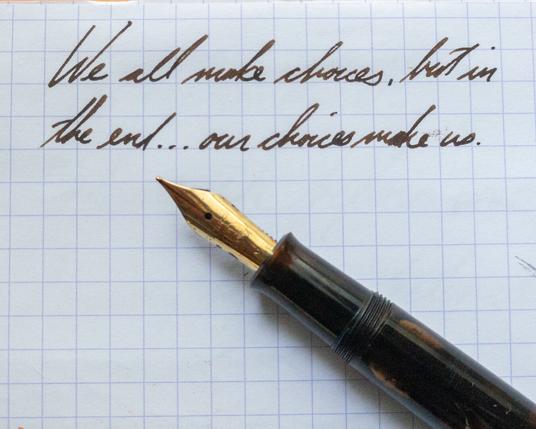 We all make choices, but in
the end... our choices make us.